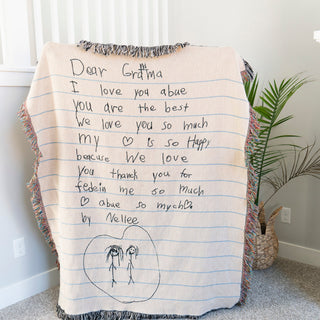 Dear Gradma
I love you abue
you are the best
We love you so much
my ♡ is so Happy
beacuse We love
you thank you for
fedein me so much
♡ abue so mych♡
by Nellee